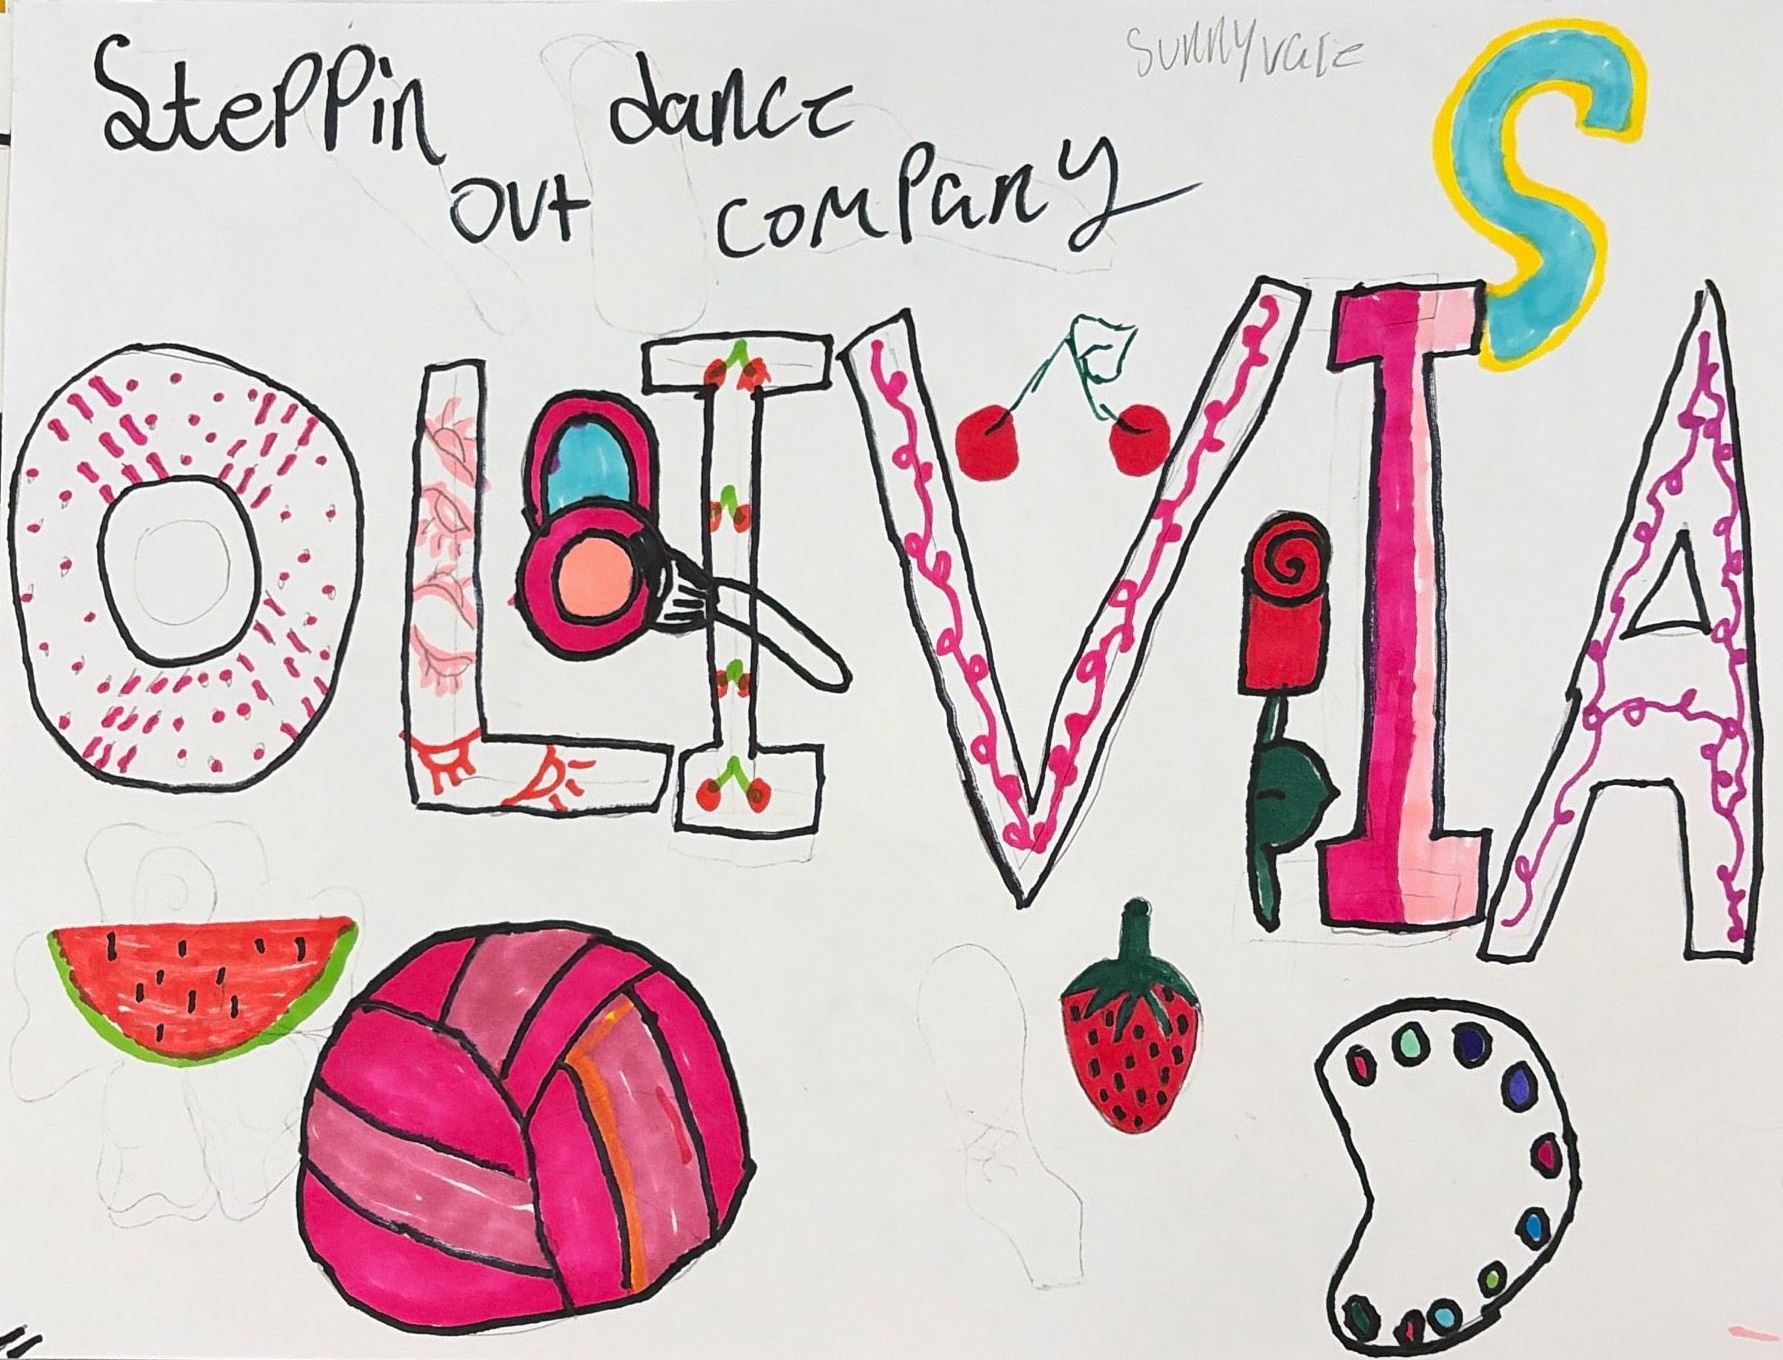 Steppin dance
out company
sunnyvale
S
OLIVIA